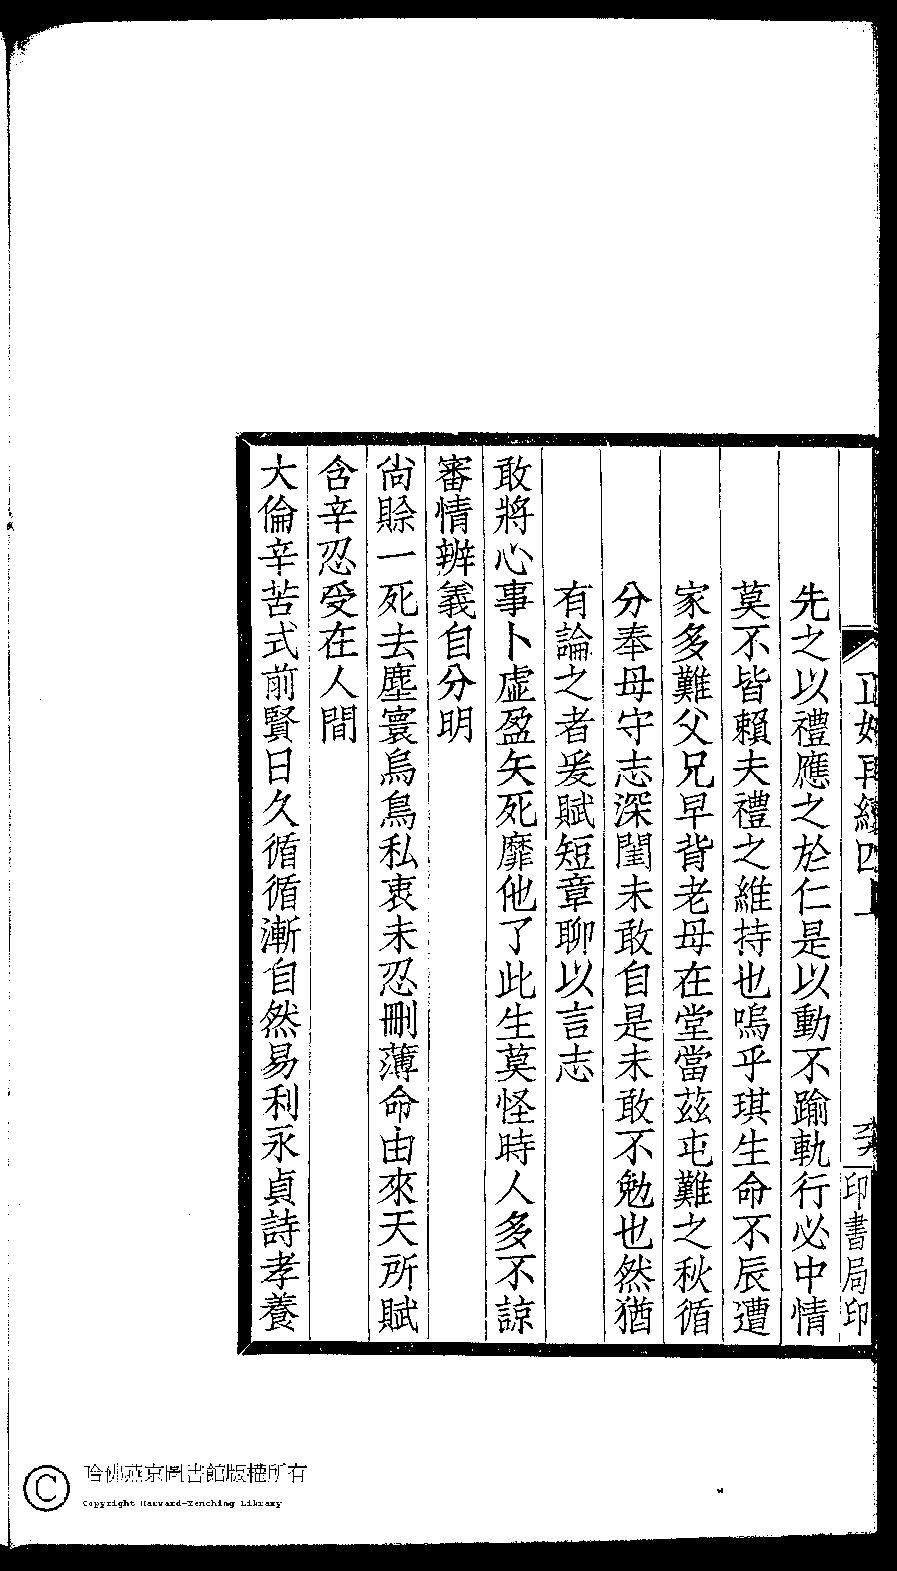 先之以禮應之於仁是以動不踰軌行必中情
莫不皆賴夫禮之維持也嗚乎琪生命不辰遭
家多難父兄早背老母在堂當茲屯難之秋循
分奉母守志深閨未敢自是未敢不勉也然猶
有論之者爰賦短章聊以言志
敢將心事卜虛盈矢死靡他了此生莫怪時人多不諒
審情辨義自分明
尙賒一死去塵寰烏鳥私衷未忍刪薄命由來天所賦
含辛忍受在人間
大倫辛苦式前賢日久循循漸自然易利永貞詩孝養
印書局印
哈佛燕京圖書館版權所有
Copyright Harvard-Yenching Library